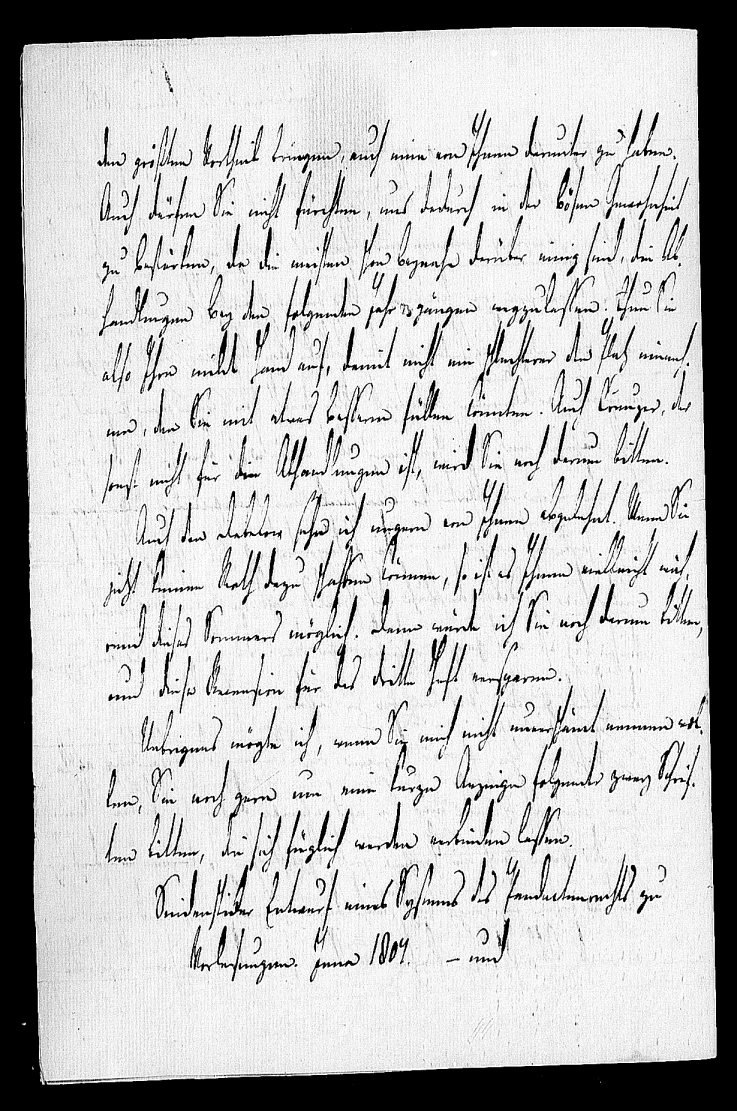 den größten Vortheil bringen, auch eine von Ihnen darunter zu haben.
Auch dürfen Sie nicht fürchten, uns dadurch in der bösen Gewohnheit
zu bestärken, da die meisten schon beynahe darüber einig sind, die Ab-
handlungen bey den folgenden Jahrgängen wegzulassen. Thun Sie
also Ihre milde Hand auf, damit nicht ein schlechterer den Platz einneh-
me, den Sie mit etwas besserm füllen könnten. Auch Creuzer, der
sonst nicht für die Abhandlungen ist, wird Sie noch darum bitten.
Auch den Dabelow sehe ich ungern von Ihnen abgelehnt. Wenn Sie
jetzt keinen Rath dazu schaffen können, so ist es Ihnen vielleicht wäh-
rend dieses Sommers möglich. Dann würde ich Sie noch darum bitten,
und diese Recension für das dritte Heft versparen.
Uebrigens mögte ich, wenn Sie mich nicht unverschämt nennen wol-
len, Sie noch gern um eine kurze Anzeige folgender zwey Schrif-
ten bitten, die sich füglich werden verbinden lassen.
Seidensticker Entwurf eines Systems des Pandectenrechts zu
Vorlesungen. Jena 1807. – und